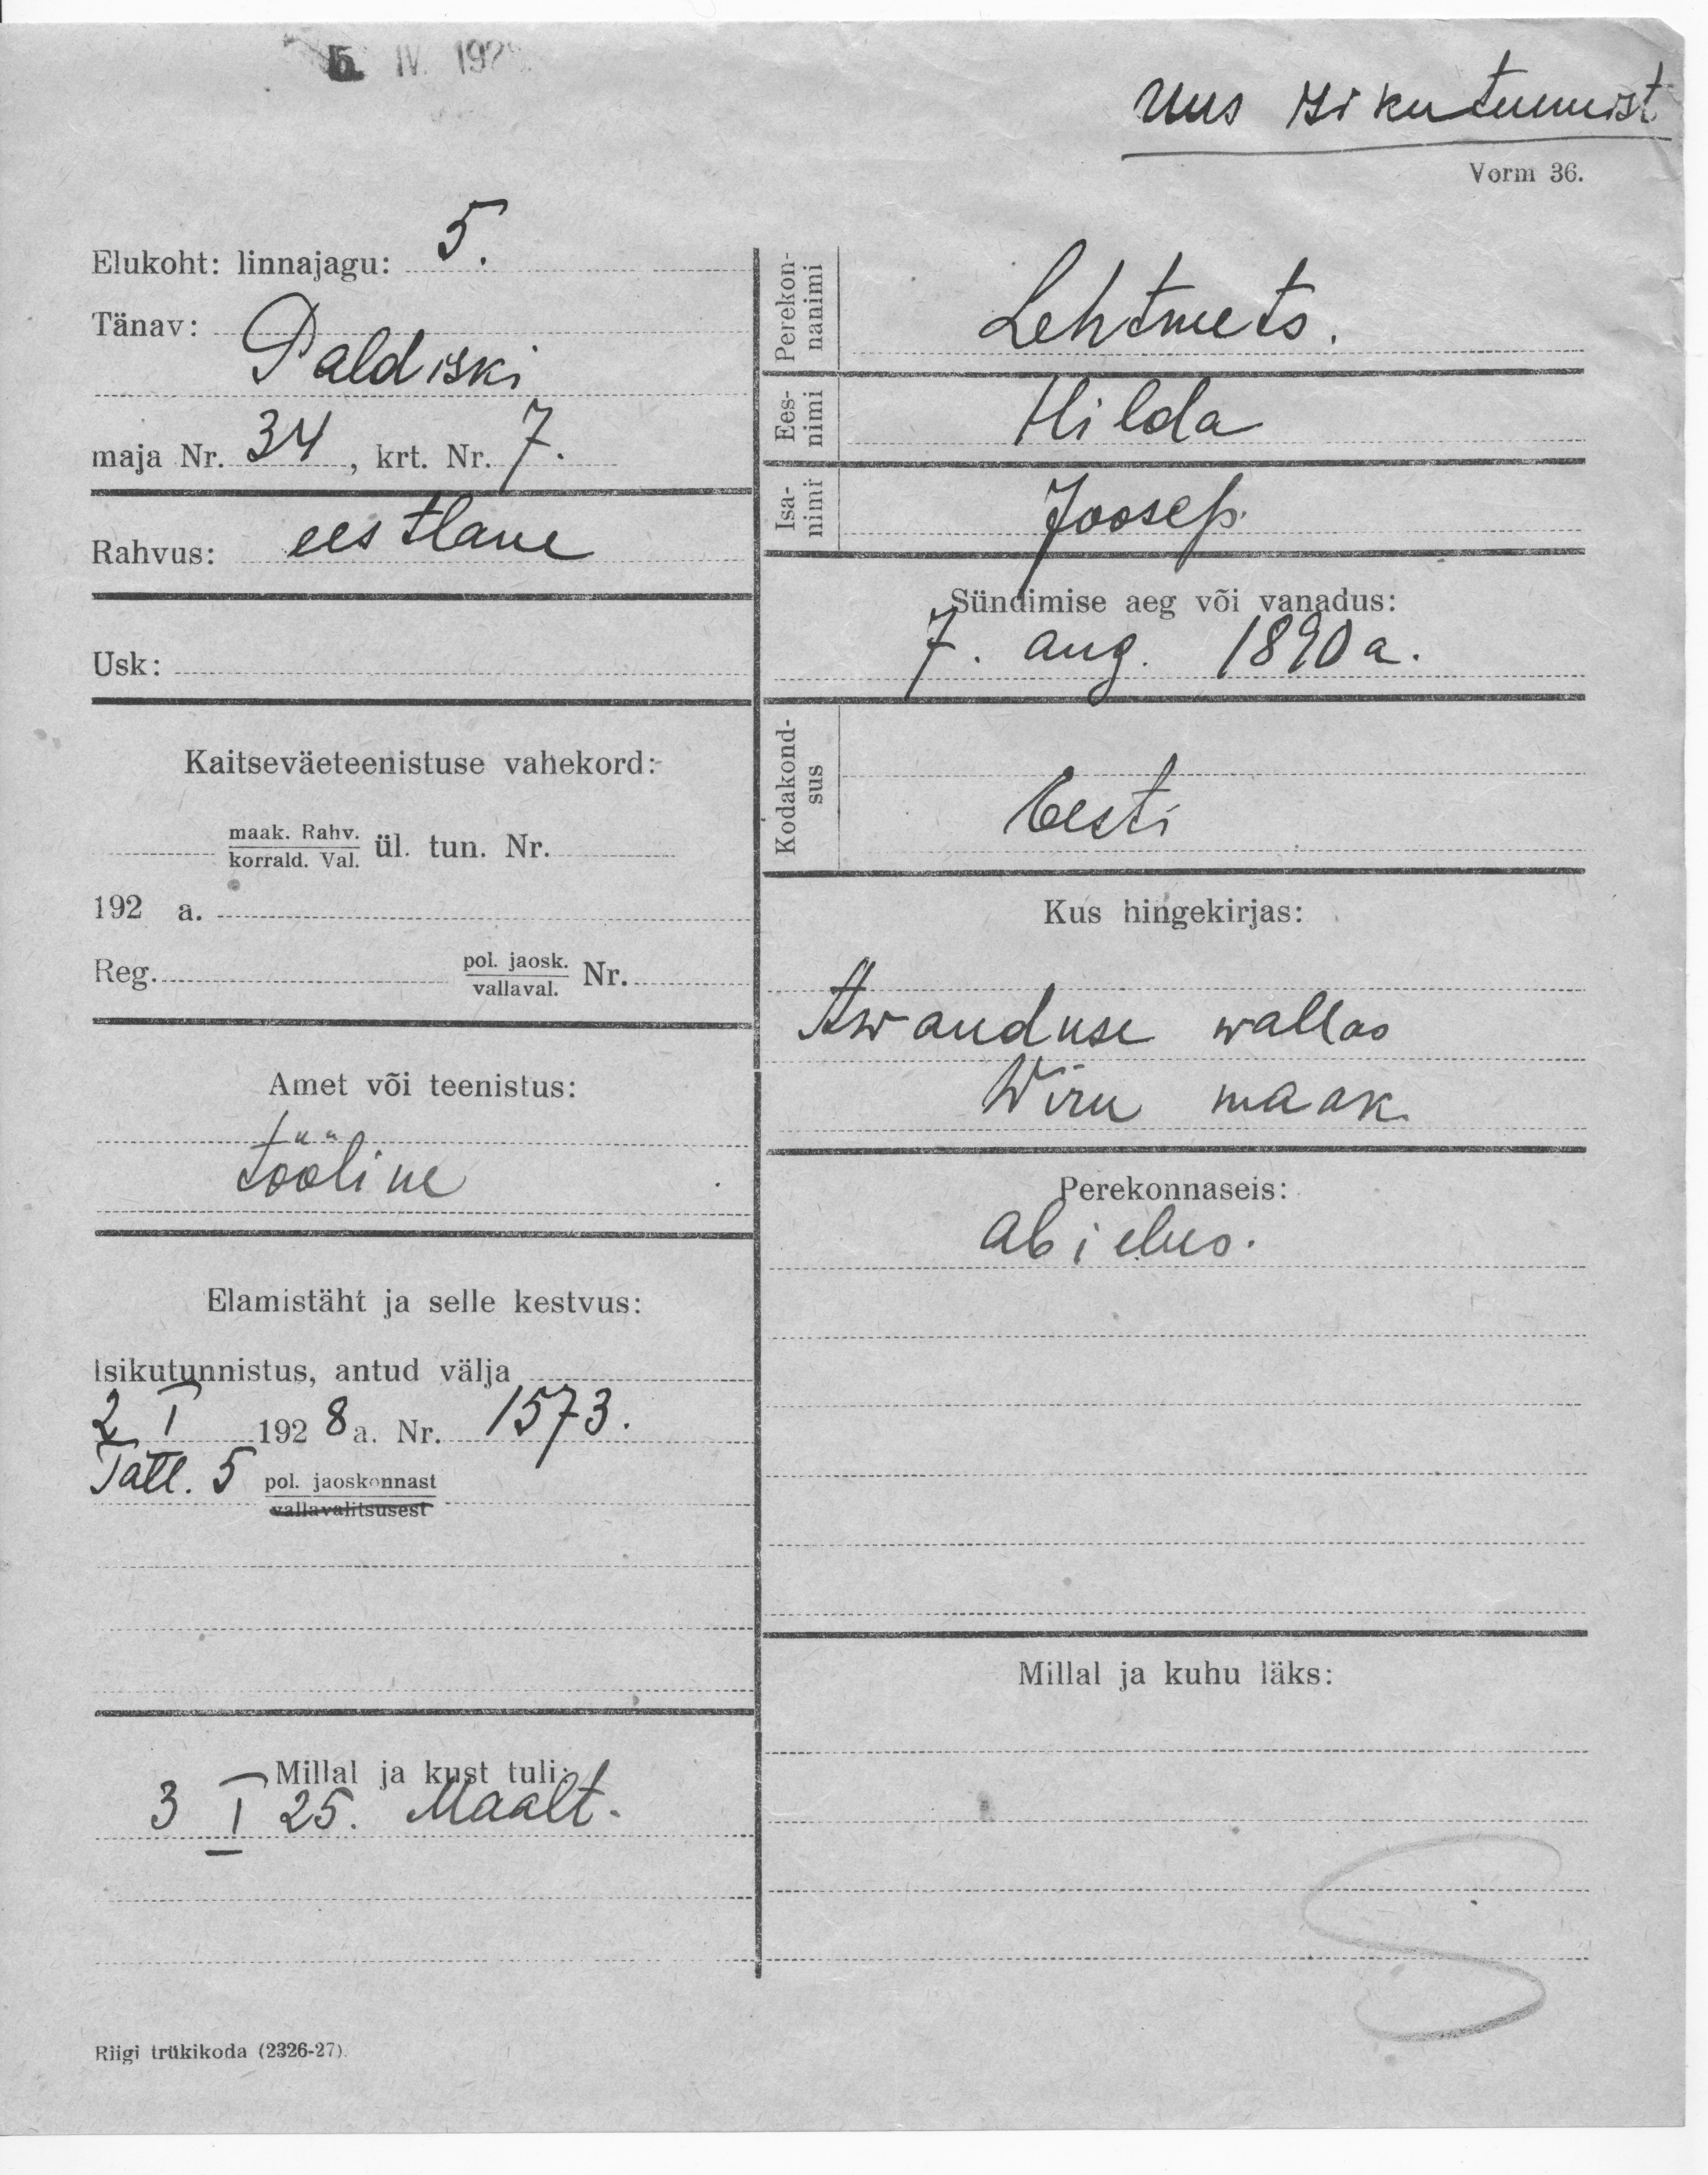 5. IV. 192
uus isikutunnist
Vorm 36.
Elukoht: linnajagu: 5.
Tänav:
Paldiski
maja Nr. 34, krt. Nr. 7.
Rahvus: eestlane
Usk:
Kaitseväeteenistuse vahekord:
maak. Rahv.
korrald. Val. ül. tun. Nr.
192 a.
Reg. pol. jaosk.
vallaval. Nr.
Amet või teenistus:
tööline
Elamistäht ja selle kestvus:
Isikutunnistus, antud välja
2 I 1928 a. Nr. 1573.
Tall. 5 pol. jaoskonnast
vallavalitsusest
Millal ja kust tuli:
3 I 25. Maalt.
Riigi trükikoda (2326-27).
Perekon-
nanimi
Lehtmets.
Ees-
nimi
Hilda
Isa-
nimi
Joosep.
Sündimise aeg või vanadus:
7. aug. 1890 a.
Kodakond-
sus
Eesti
Kus hingekirjas:
Awanduse wallas
Wiru maak
Perekonnaseis:
abielus.
Millal ja kuhu läks: